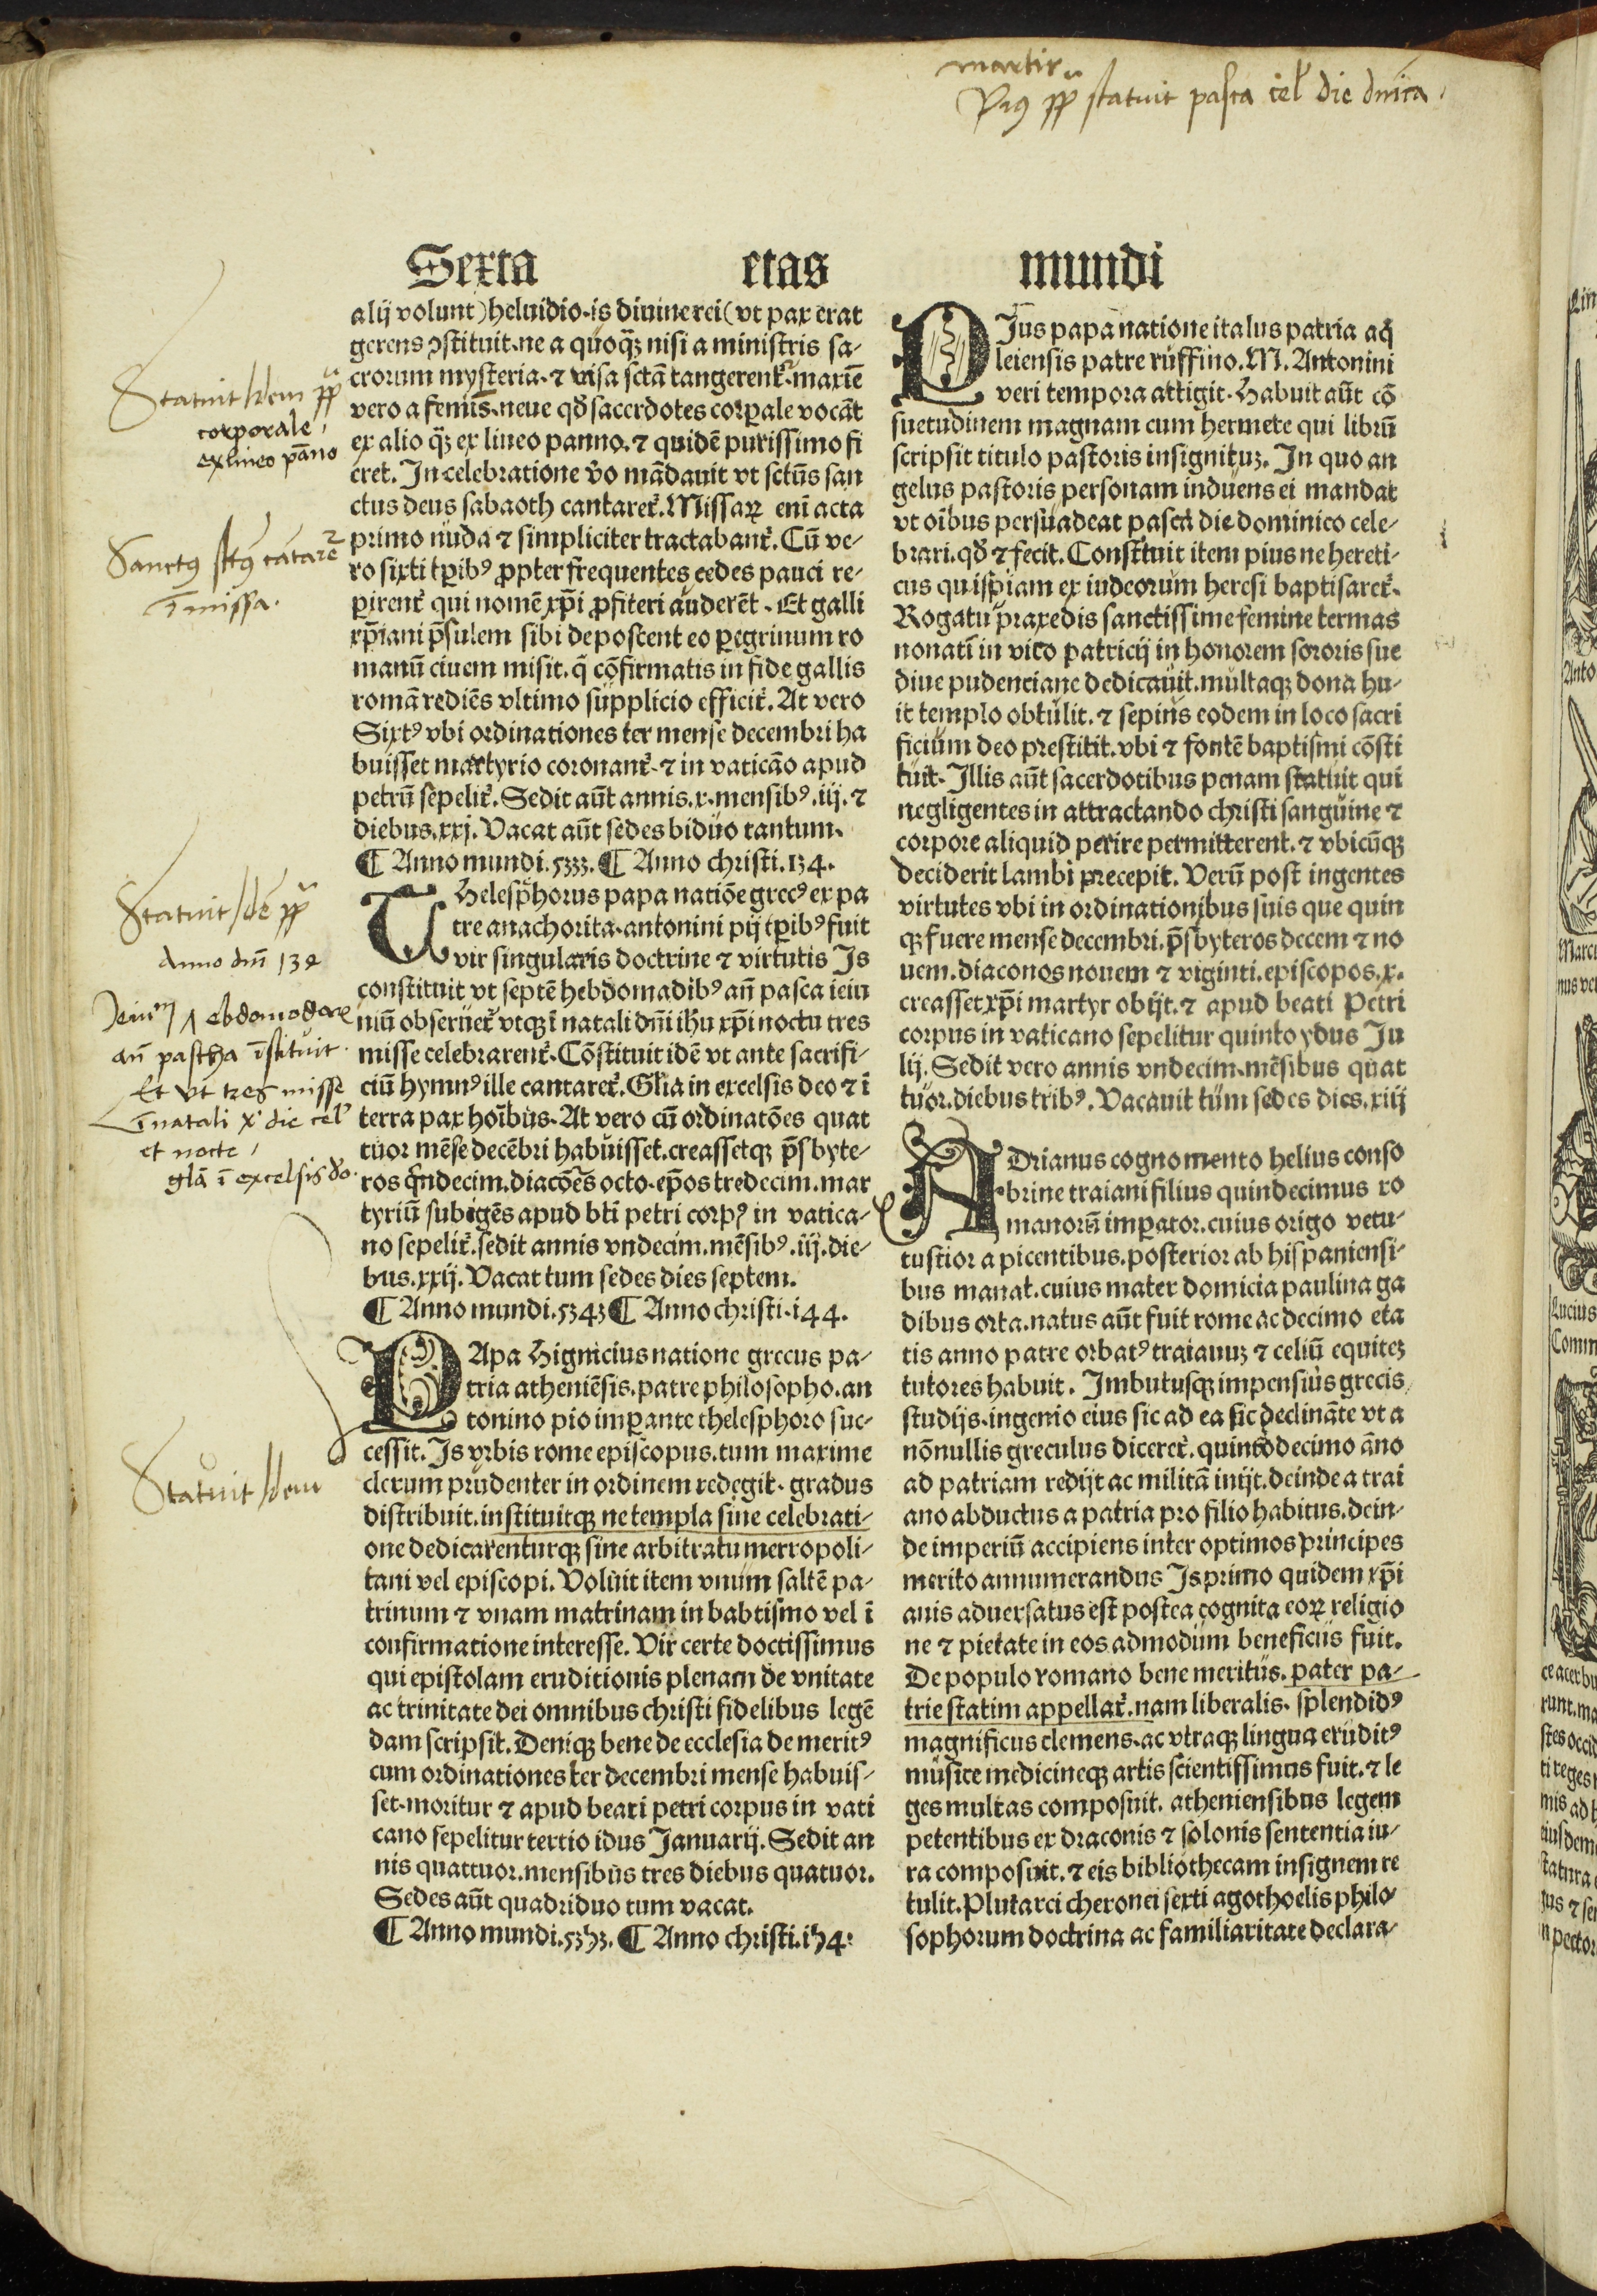 martir
Pius pp statuit pasca cel die dnica
Sexta etas mundi
alij volunt) heluidio.is diuine rei (vt pax erat
gerens ꝯstituit.ne a quoqꝫ nisi a ministris sa-
crorum mysteria.⁊ visa sctā tangerent᷑.maxīe
vero a femīs.neue qđ sacerdotes corꝑale vocāt
ex alio qꝫ ex lineo panno.⁊ quidē purissimo fi
eret. In celebratione v̄o mādauit vt sctūs san
ctus deus sabaoth cantaret᷑. Missaꝝ enī acta
primo nuda ⁊ simpliciter tractabant᷑. Cū ve-
ro sixti tꝑibꝰ ꝓpter frequentes cedes pauci re-
ꝑirent᷑ qui nomē xp̄i ꝓfiteri auderēt. Et galli
xp̄iani p̄sulem sibi deposcent eo ꝑegrinum ro
manū ciuem misit.q̄ cōfirmatis in fide gallis
romā rediēs vltimo supplicio efficit᷑. At vero
Sixtꝰ vbi ordinationes ter mense decembri ha
buisset martyrio coronant᷑.⁊ in vaticāo apud
petrū sepelit᷑. Sedit aūt annis.x.mensibꝰ.iij.⁊
diebus.xxj. Vacat aūt sedes biduo tantum.
¶ Anno mundi.5333. ¶ Anno christi.134.
THelesphorus papa natiōe grecꝰ ex pa
tre anachorita.antonini pij tꝑibꝰ fuit
vir singularis doctrine ⁊ virtutis Is
constituit vt septē hebdomadibꝰ an̄ pasca ieiu
niū obseruet᷑ vtqꝫ ī natali dn̄i ihu xp̄i noctu tres
misse celebrarent᷑. Cōstituit idē vt ante sacrifi-
ciū hymnꝰ ille cantaret᷑. Glīa in excelsis deo ⁊ ī
terra pax hoībus. At vero cū ordinatōes quat
tuor mēse decēbri habuisset.creassetqꝫ p̄sbyte-
ros q̄ndecim.diacōes octo.ep̄os tredecim.mar
tyriū subigēs apud bt̄i petri corpꝰ in vatica-
no sepelit᷑.sedit annis vndecim.mēsibꝰ.iij.die-
bus.xxij. Vacat tum sedes dies septem.
¶ Anno mundi.5343 ¶ Anno christi.144.
PApa Higinicius natione grecus pa-
tria atheniēsis.patre philosopho.an
tonino pio imꝑante thelesphoro suc-
cessit. Is vrbis rome episcopus.tum maxime
clerum prudenter in ordinem redegit.gradus
distribuit.instituitqꝫ ne templa sine celebrati-
one dedicarenturqꝫ sine arbitratu metropoli-
tani vel episcopi. Voluit item vnum saltē pa-
trinum ⁊ vnam matrinam in babtismo vel ī
confirmatione interesse. Vir certe doctissimus
qui epistolam eruditionis plenam de vnitate
ac trinitate dei omnibus christi fidelibus legē
dam scripsit. Deniqꝫ bene de ecclesia de meritꝰ
cum ordinationes ter decembri mense habuis-
set.moritur ⁊ apud beati petri corpus in vati
cano sepelitur tertio idus Januarij. Sedit an
nis quattuor.mensibus tres diebus quatuor.
Sedes aūt quadriduo tum vacat.
¶ Anno mundi.5353. ¶ Anno christi.154.
PIus papa natione italus patria aq̄
leiensis patre ruffino. M. Antonini
veri tempora attigit. Habuit aūt cō
suetudinem magnam cum hermete qui librū
scripsit titulo pastoris insignituꝫ. In quo an
gelus pastoris personam induens ei mandat
vt oībus persuadeat pasca die dominico cele-
brari.qđ ⁊ fecit. Constituit item pius ne hereti-
cus quispiam ex iudeorum heresi baptisaret᷑.
Rogatu praxedis sanctissime femine termas
nonati in vico patricij in honorem sororis sue
diue pudenciane dedicauit.multaqꝫ dona hu-
ic templo obtulit.⁊ sepius eodem in loco sacri
ficium deo prestitit.vbi ⁊ fontē baptismi cōsti
tuit. Illis aūt sacerdotibus penam statuit qui
negligentes in attractando christi sanguine ⁊
corpore aliquid perire permitterent.⁊ vbicūqꝫ
deciderit lambi precepit. Verū post ingentes
virtutes vbi in ordinationibus suis que quin
qꝫ fuere mense decembri.p̄sbyteros decem ⁊ no
uem.diaconos nouem ⁊ viginti.episcopos.x.
creasset xp̄i martyr obijt.⁊ apud beati Petri
corpus in vaticano sepelitur quinto ydus Ju
lij. Sedit vero annis vndecim.mēsibus quat
tuor.diebus tribꝰ. Vacauit tum sedes dies.xiij
ADrianus cognomento helius conso
brine traiani filius quindecimus ro
manorū imꝑator.cuius origo vetu-
tustior a picentibus.posterior ab hispaniensi-
bus manat.cuius mater domicia paulina ga
dibus orta.natus aūt fuit rome ac decimo eta
tis anno patre orbatꝰ traianuꝫ ⁊ celiū equiteꝫ
tutores habuit. Imbutusqꝫ impensius grecis
studijs.ingenio eius sic ad ea sic declināte vt a
nōnullis greculus diceret᷑.quintodecimo āno
ad patriam redijt ac militā inijt.deinde a trai
ano abductus a patria pro filio habitus.dein-
de imperiū accipiens inter optimos principes
merito annumerandus Is primo quidem xp̄i
anis aduersatus est postea cognita eoꝝ religio
ne ⁊ pietate in eos admodum beneficus fuit.
De populo romano bene meritus.pater pa-
trie statim appellat᷑.nam liberalis.splendidꝰ
magnificus clemens.ac vtraqꝫ lingua eruditꝰ
musice medicineqꝫ artis scientissimus fuit.⁊ le
ges multas composuit.atheniensibus legem
petentibus ex draconis ⁊ solonis sententia iu-
ra composuit.⁊ eis bibliothecam insignem re
tulit. Plutarci cheronei sexti agothoelis philo-
sophorum doctrina ac familiaritate declara-
Statuit Idem pp
corporale
ex lineo pāno
Sanctꝰ sctꝰ cātare
ī missa.
Statuit Idē pp
Anno dn̄i 134
ebdomodare
an̄ pascha īstituit.
Et vt tres misse
ī natali x' die cel'
et nocte
glā ī excelsis do.
Statuit Idem
Anto
nus ve
Lucius